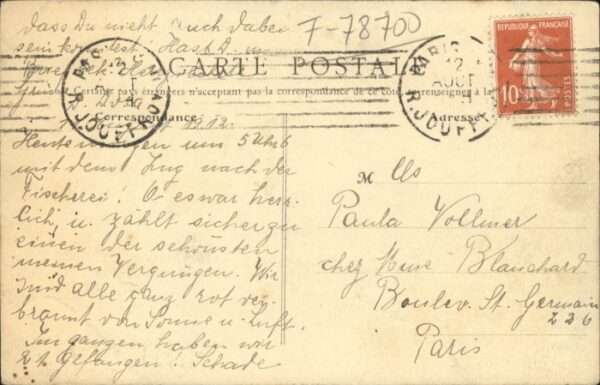 dass Du nicht auch dabei
sein konntest. Hast D.
F-78700
CARTE POSTALE
Certains pays étrangers n'acceptent pas la correspondance de ce côté
Correspondance
Adresse
REPUBLIQUE FRANÇAISE
10
POSTES
PARIS
12
AOUT
R. JOUFFROY
PARIS
R. JOUFFROY
1912.
Heute morgen um 5 Uhr
mit dem Zug nach der
Fischerei! O es war herr-
lich, u. zählt sicher zu
einen der schönsten
meinen Vergnügen. Wir
sind alle ganz rot ver-
brannt von Sonne u. Luft.
Im ganzen haben wir
gefangen! Schade
M lls
Paula Vollmer
chez Mme Blanchard
Boulev. St-Germain
226
Paris